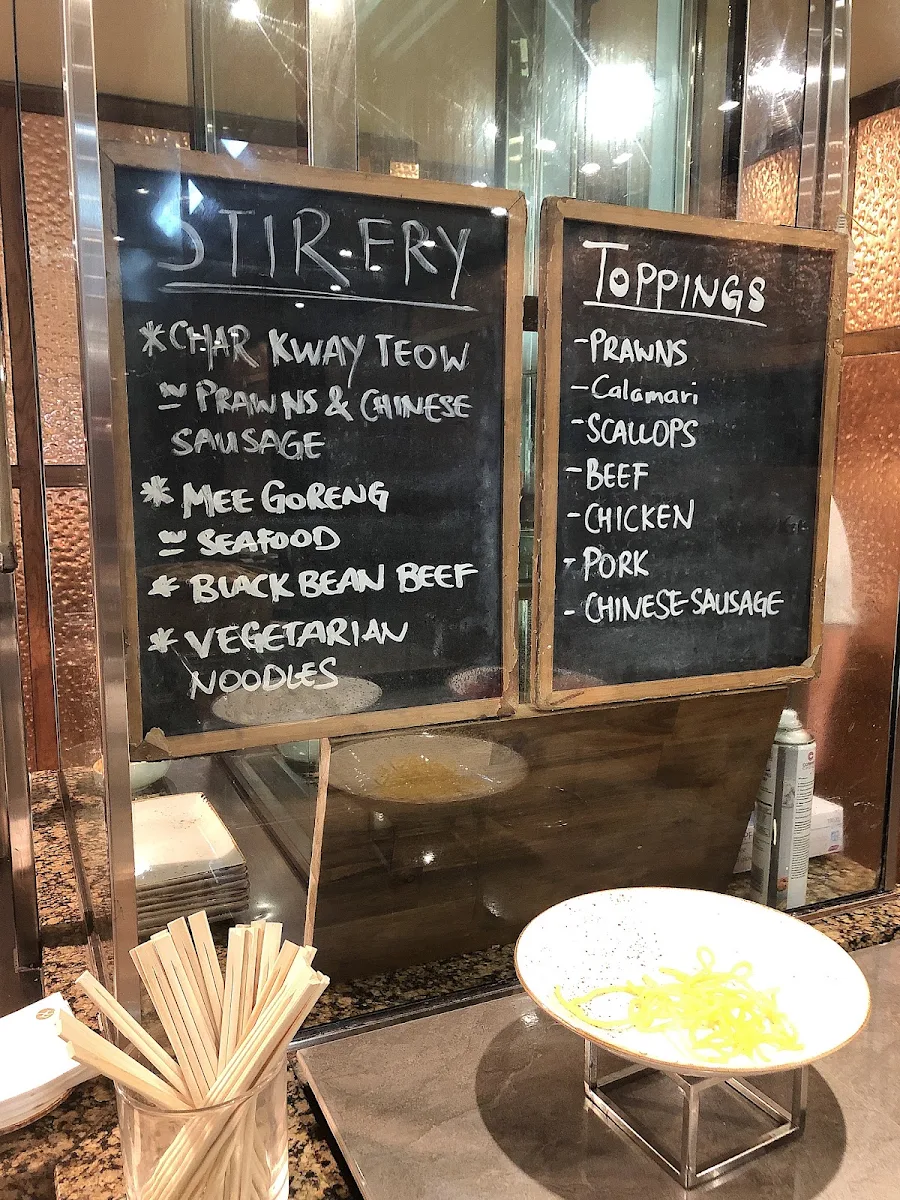 STIR FRY
* CHAR KWAY TEOW
w PRAWNS & CHINESE
SAUSAGE
* MEE GORENG
w SEAFOOD
* BLACK BEAN BEEF
* VEGETARIAN
NOODLES
TOPPINGS
- PRAWNS
- Calamari
- SCALLOPS
- BEEF
- CHICKEN
- PORK
- CHINESE SAUSAGE